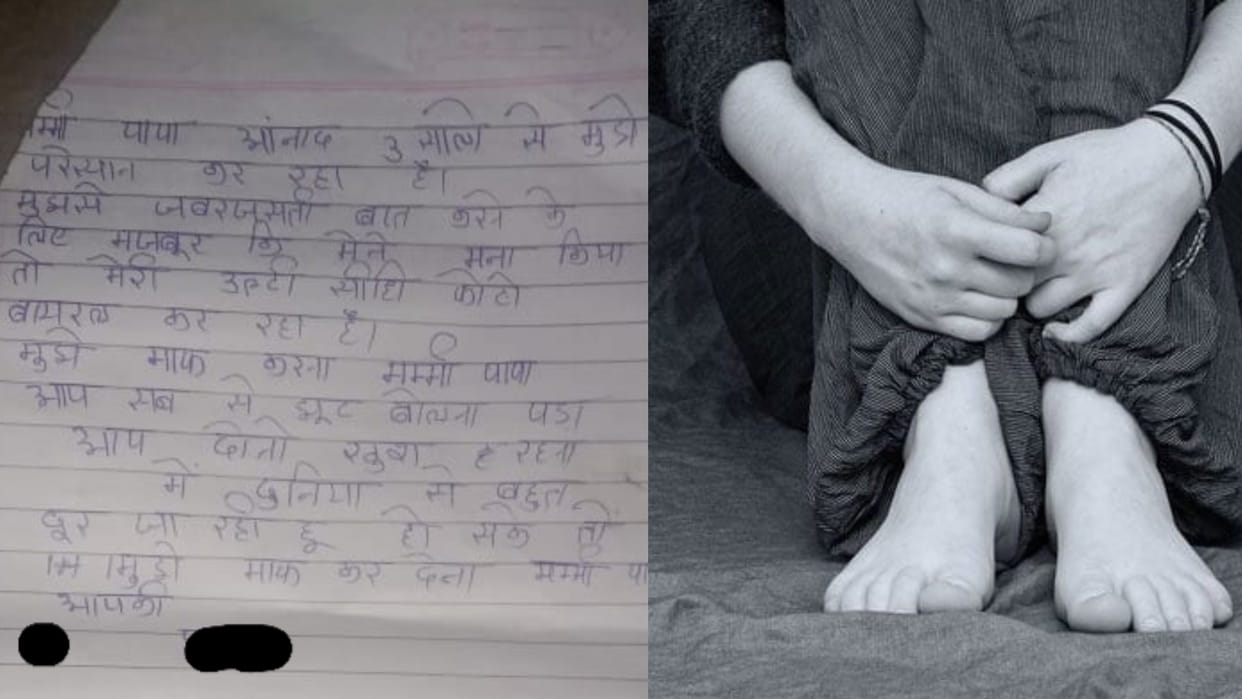 मम्मी पापा आंनाद 3 साल से मुझे
परेस्यान कर रहा है।
मुझसे जबरजस्ती बात करने के
लिए मजबूर कि मेने मना किया
तो मेरी उल्टी सीधि फोटो
वायरल कर रहा है।
मुझे माफ करना मम्मी पापा
आप सब से झूट बोलना पडा
आप दोनो खुश रहना
में दुनिया से बहुत
दूर जा रही हू हो सके तो
मुझे माफ कर देना मम्मी पा
आपकी